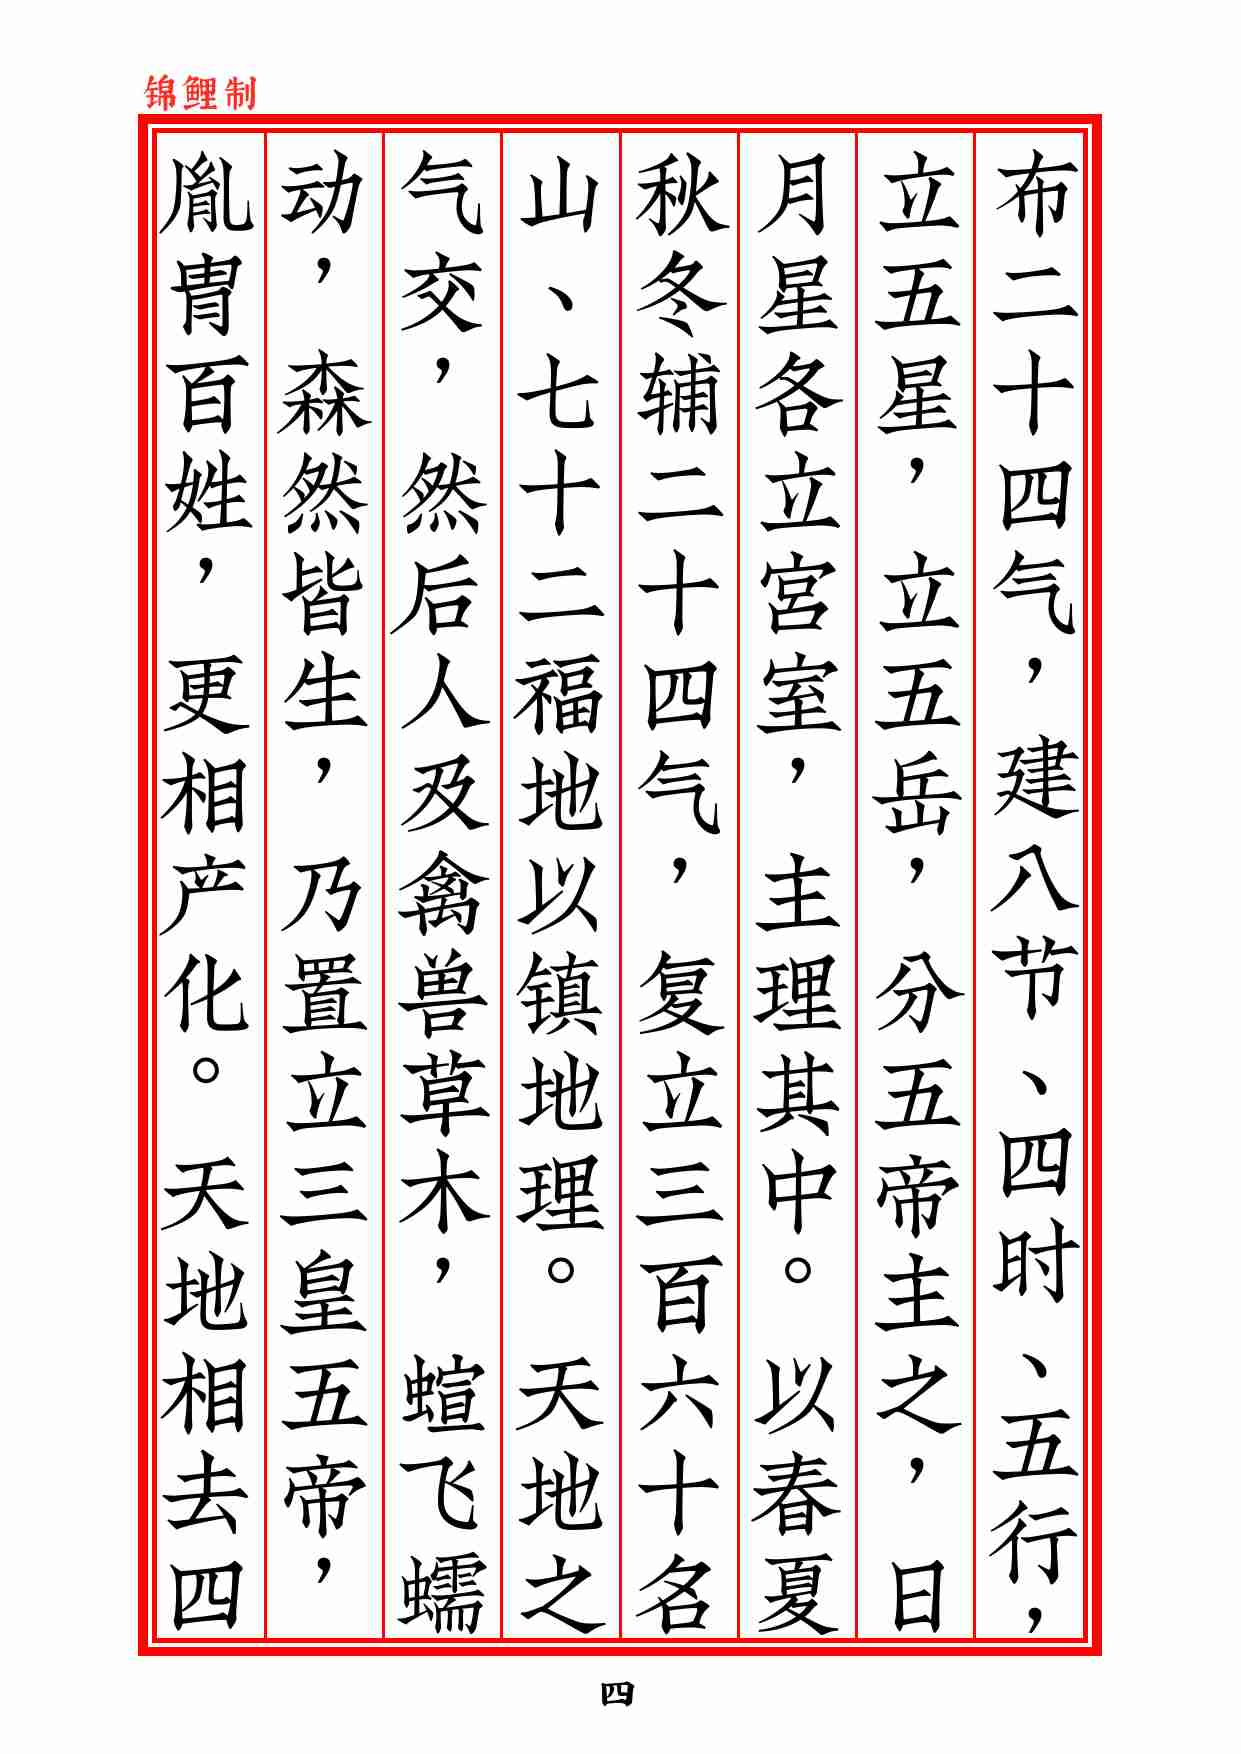 锦鲤制
布二十四气，建八节、四时、五行，
立五星，立五岳，分五帝主之，日
月星各立宫室，主理其中。以春夏
秋冬辅二十四气，复立三百六十名
山、七十二福地以镇地理。天地之
气交，然后人及禽兽草木，蝖飞蠕
动，森然皆生，乃置立三皇五帝，
胤胄百姓，更相产化。天地相去四
四